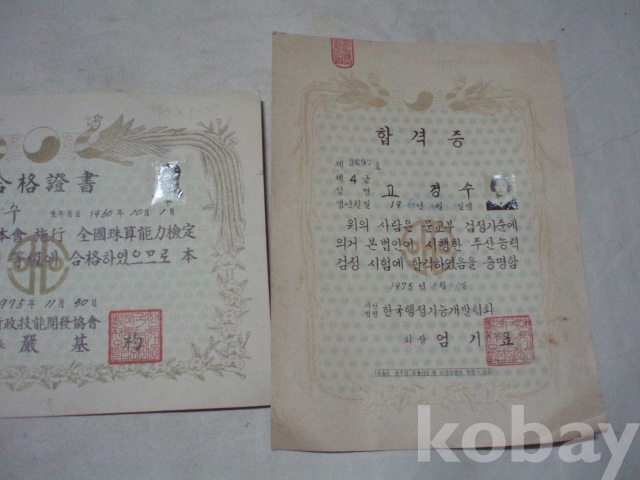 合格證書
수
生年月日 1960年 10月 1日
本會 施行 全國珠算能力檢定
等級에 合格하였으므로 本
1975年 11月 30日
行政技能開發協會
嚴基杓
합격증
제 3697 호
제 4 급
성명 고경수
생년월일 19
위의 사람은 문교부 검정기준에
의거 본법인이 시행한 주산능력
검정 시험에 합격하였음을 증명함
1975년
사단법인 한국행정기능개발협회
회장 엄기표
kobay